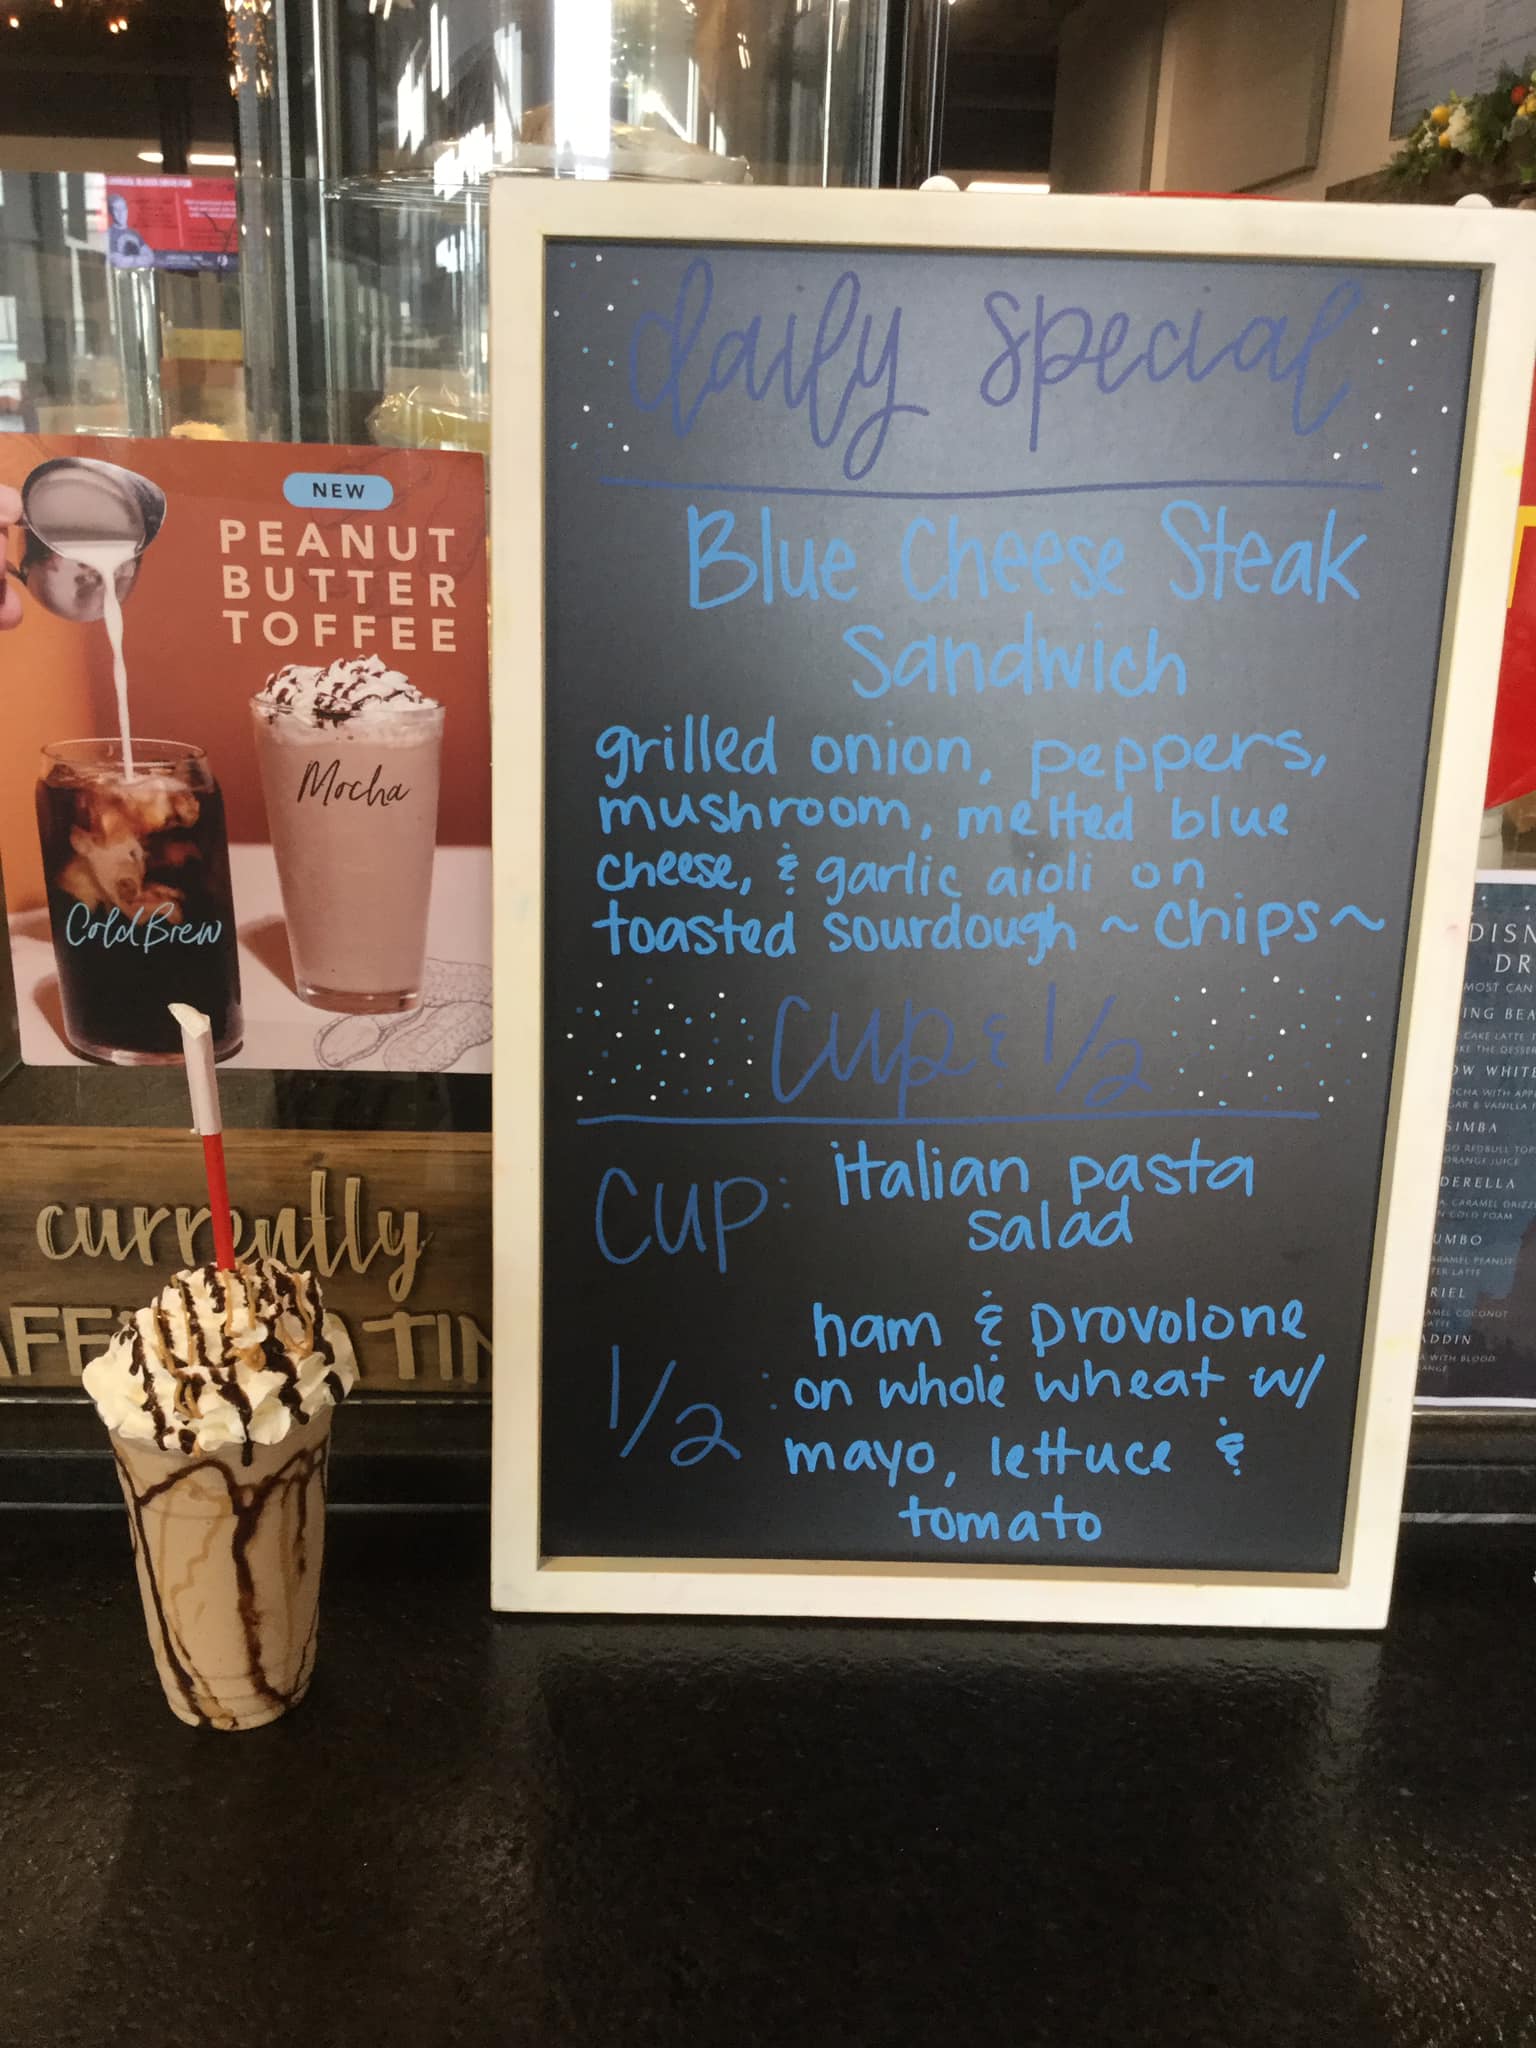 NEW
PEANUT
BUTTER
TOFFEE
Mocha
Cold Brew
currently
daily special
Blue Cheese Steak
Sandwich
grilled onion, peppers,
mushroom, melted blue
cheese, & garlic aioli on
toasted sourdough ~ Chips ~
cup & 1/2
Cup: italian pasta
salad
1/2 : ham & provolone
on whole wheat w/
mayo, lettuce &
tomato
DISN
DR
MOST CAN
ING BEA
CAKE LATTE
THE DESSER
OW WHITE
OCHA WITH APP
GAR & VANILLA
SIMBA
GO REDBULL TOP
ORANGE JUICE
DERELLA
CARAMEL DRIZZ
N COLD FOAM
UMBO
ARAMEL PEANUT
TER LATTE
RIEL
AMEL COCONUT
LATTE
ADDIN
WITH BLOOD
ANGE